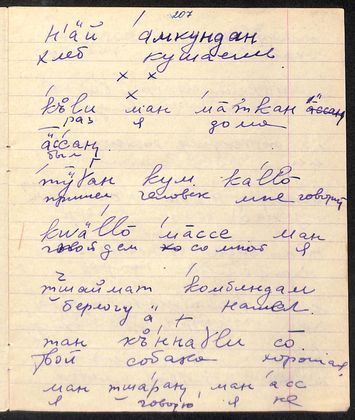 207
н'ӓй амкундан
хлеб кушаешь
× ×
×
къви ман мāткан ӓссан
раз я дома
ӓссан
был
тӱɣан кум кāllō
пришел человек мне говорит
kwӓllō мāссе ман
пойдем со мной я
тшаймат комбиндам
берлогу нашел.
ӓ +
тан къннаɣви сō
твой собака хорошая
ман тшāраң ман' ӓсс
я говорю я не